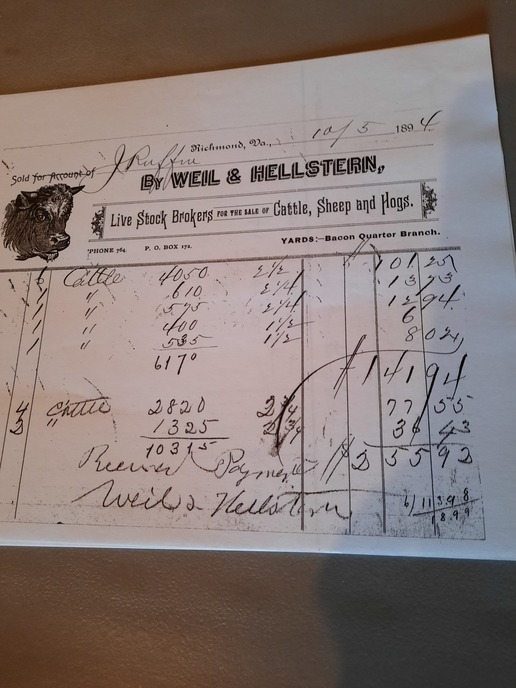 Richmond, Va., 10/5 1894.
Sold for Account of J Ruffin
By WEIL & HELLSTERN,
Live Stock Brokers FOR THE SALE OF Cattle, Sheep and Hogs.
'PHONE 764. P. O. BOX 172. YARDS:—Bacon Quarter Branch.
6 Cattle 4050 2½ $ 101 25
1 " 610 2¼ 13 73
1 " 575 2¼ 12 94
1 " 400 1½ 6
1 " 535 1½ 8 02
6170 $ 141 94
4 Cattle 2820 2¾ 77 55
2 " 1325 2¾ 36 43
10315 $ 255 92
Received Payment
Weil & Hellstern 6/113 98
18 99